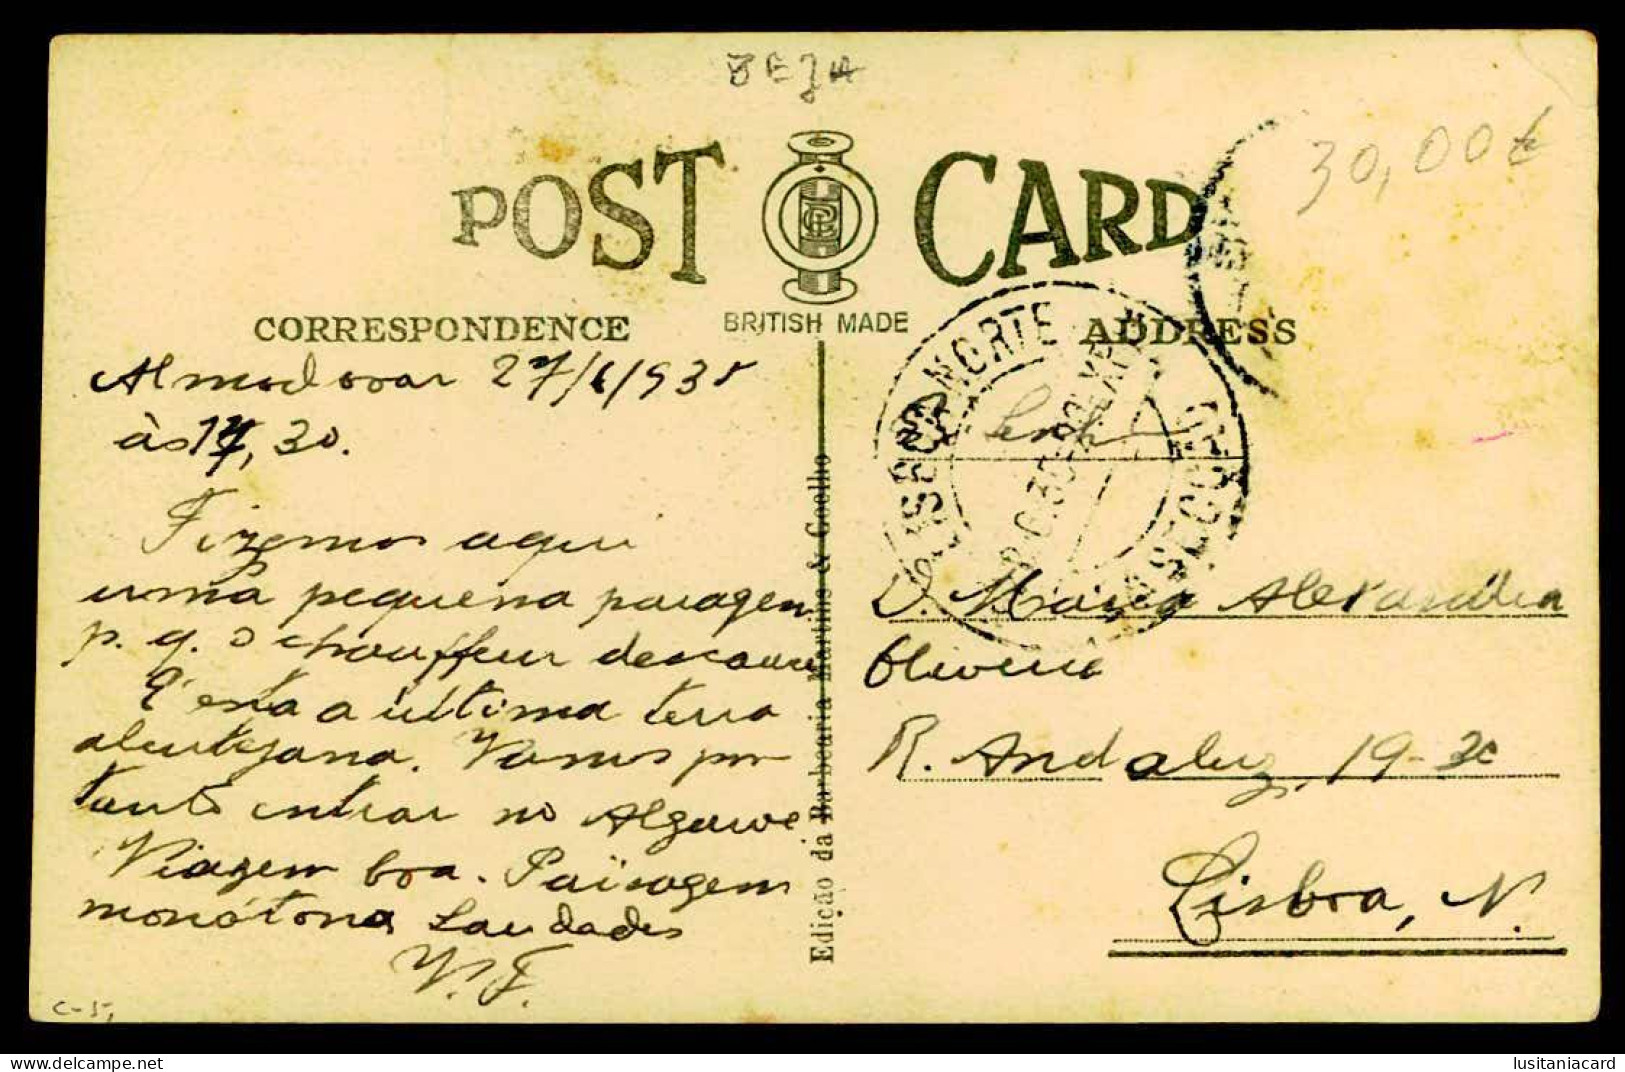 BEJA
30,00€
POST CARD
CORRESPONDENCE
BRITISH MADE
ADDRESS
Almodovar 27/6/1935
às 17,30.
Fizemos aqui
uma pequena paragem
p. q. o chouffeur descance
É esta a última terra
alentejana. Vamos por
tanto entrar no Algarve
Viagem boa. Païsagem
monótona Saudades
V. F.
C-5,
Edição da Barbearia Martins & Coelho
LISBOA NORTE
SECÇÃO
D. Maria Alexandrina
Oliveira
R. Andaluz, 19-3º
Lisboa, N.
Luso
lusitaniacard